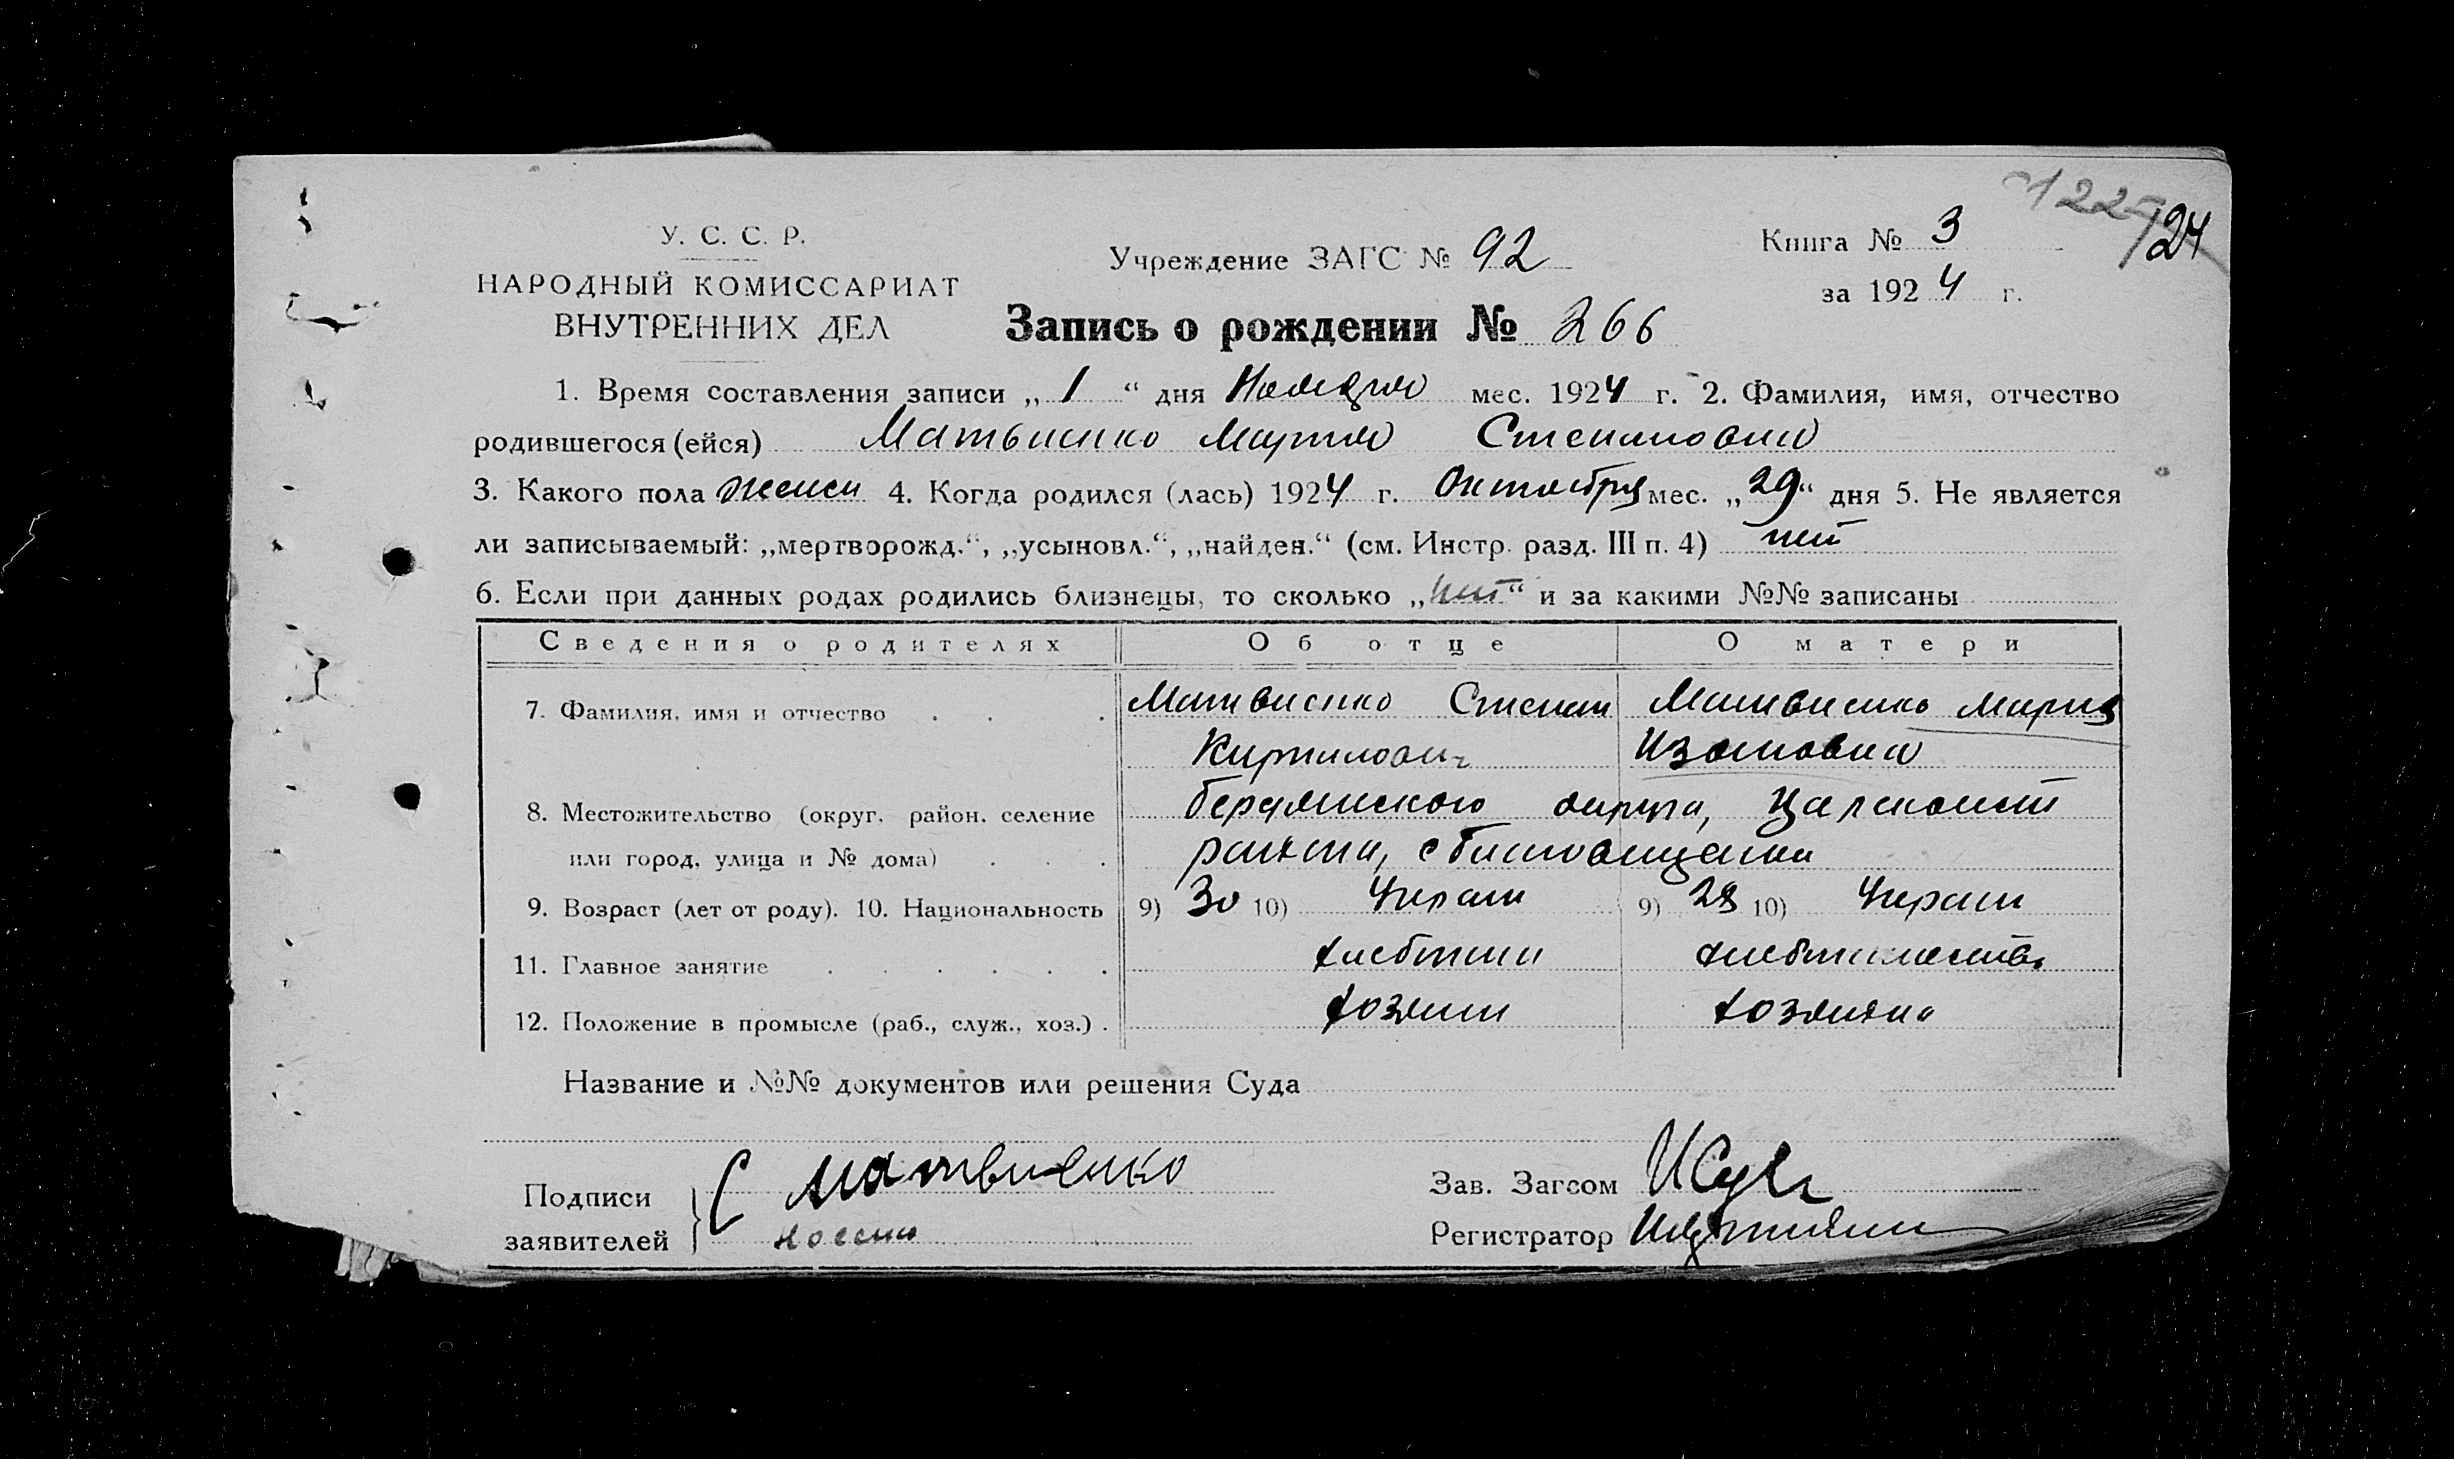 122 124
У. С. С. Р.
НАРОДНЫЙ КОМИССАРИАТ
ВНУТРЕННИХ ДЕЛ
Учреждение ЗАГС № 92
Книга № 3
за 1924 г.
Запись о рождении № 266
1. Время составления записи „ 1 “ дня Ноября мес. 1924 г. 2. Фамилия, имя, отчество
родившегося (ейся) Матвиенко Мария Степановна
3. Какого пола женск 4. Когда родился (лась) 1924 г. Октября мес. „29“ дня 5. Не является
ли записываемый: „мертворожд.“, „усыновл.“, „найден.“ (см. Инстр. разд. III п. 4) нет
6. Если при данных родах родились близнецы, то сколько „нет“ и за какими №№ записаны
Сведения о родителях Об отце О матери
7. Фамилия, имя и отчество Матвиенко Степан Матвиенко Мария
Кирилович Изотовна
8. Местожительство (округ. район. селение Бердянского округа, Цареконст
или город, улица и № дома) района,
9. Возраст (лет от роду). 10. Национальность 9) 30 10) Украин 9) 28 10) Украин
11. Главное занятие хлебопаш хлебопашество
12. Положение в промысле (раб., служ., хоз.) хозяин хозяйка
Название и №№ документов или решения Суда
Подписи С Матвиенко
заявителей
Зав. Загсом
Регистратор